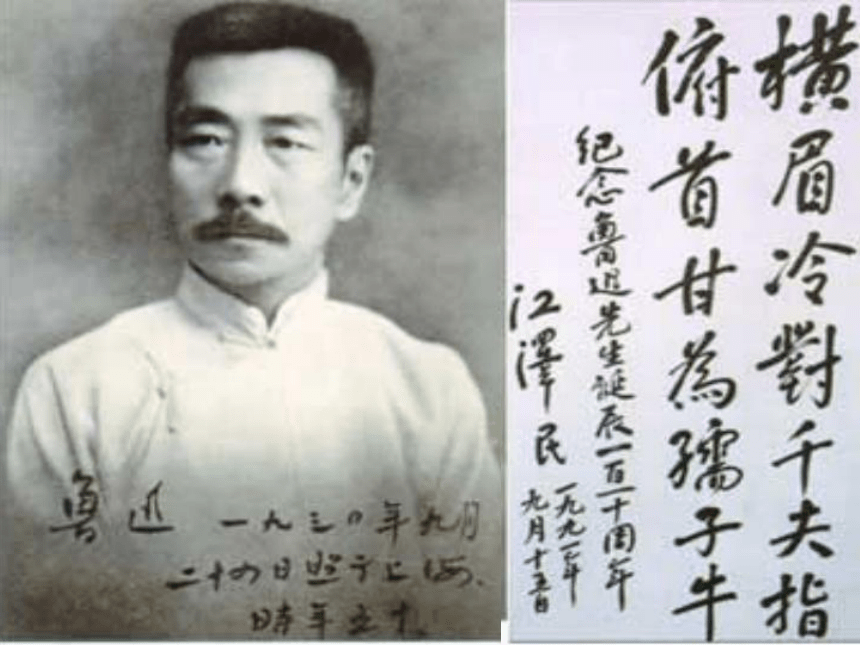 魯迅 一九三〇年九月
二十四日照于上海,
時年五十。
橫眉冷對千夫指
俯首甘為孺子牛
紀念魯迅先生誕辰一百一十周年
江澤民
一九九一年
九月十五日